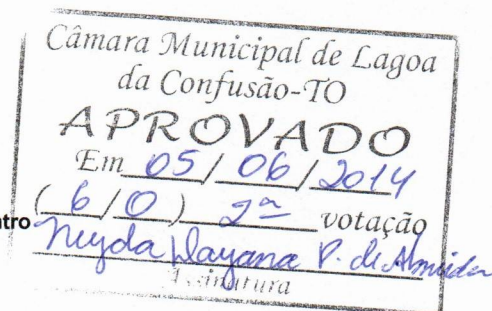 Câmara Municipal de Lagoa
da Confusão-TO
APROVADO
Em 05 / 06 / 2014
( 6 / 0 ) 2ª votação
ntro
Dayana P. de Almeida
Assinatura